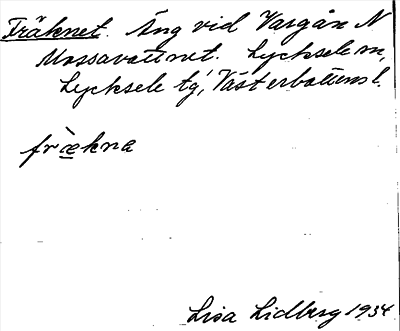 Fräknet. Äng vid Vargån N
Mossavattnet. Lycksele sn,
Lycksele tg, Västerbottens l.
fræ̀kna
Lisa Lidberg 1934